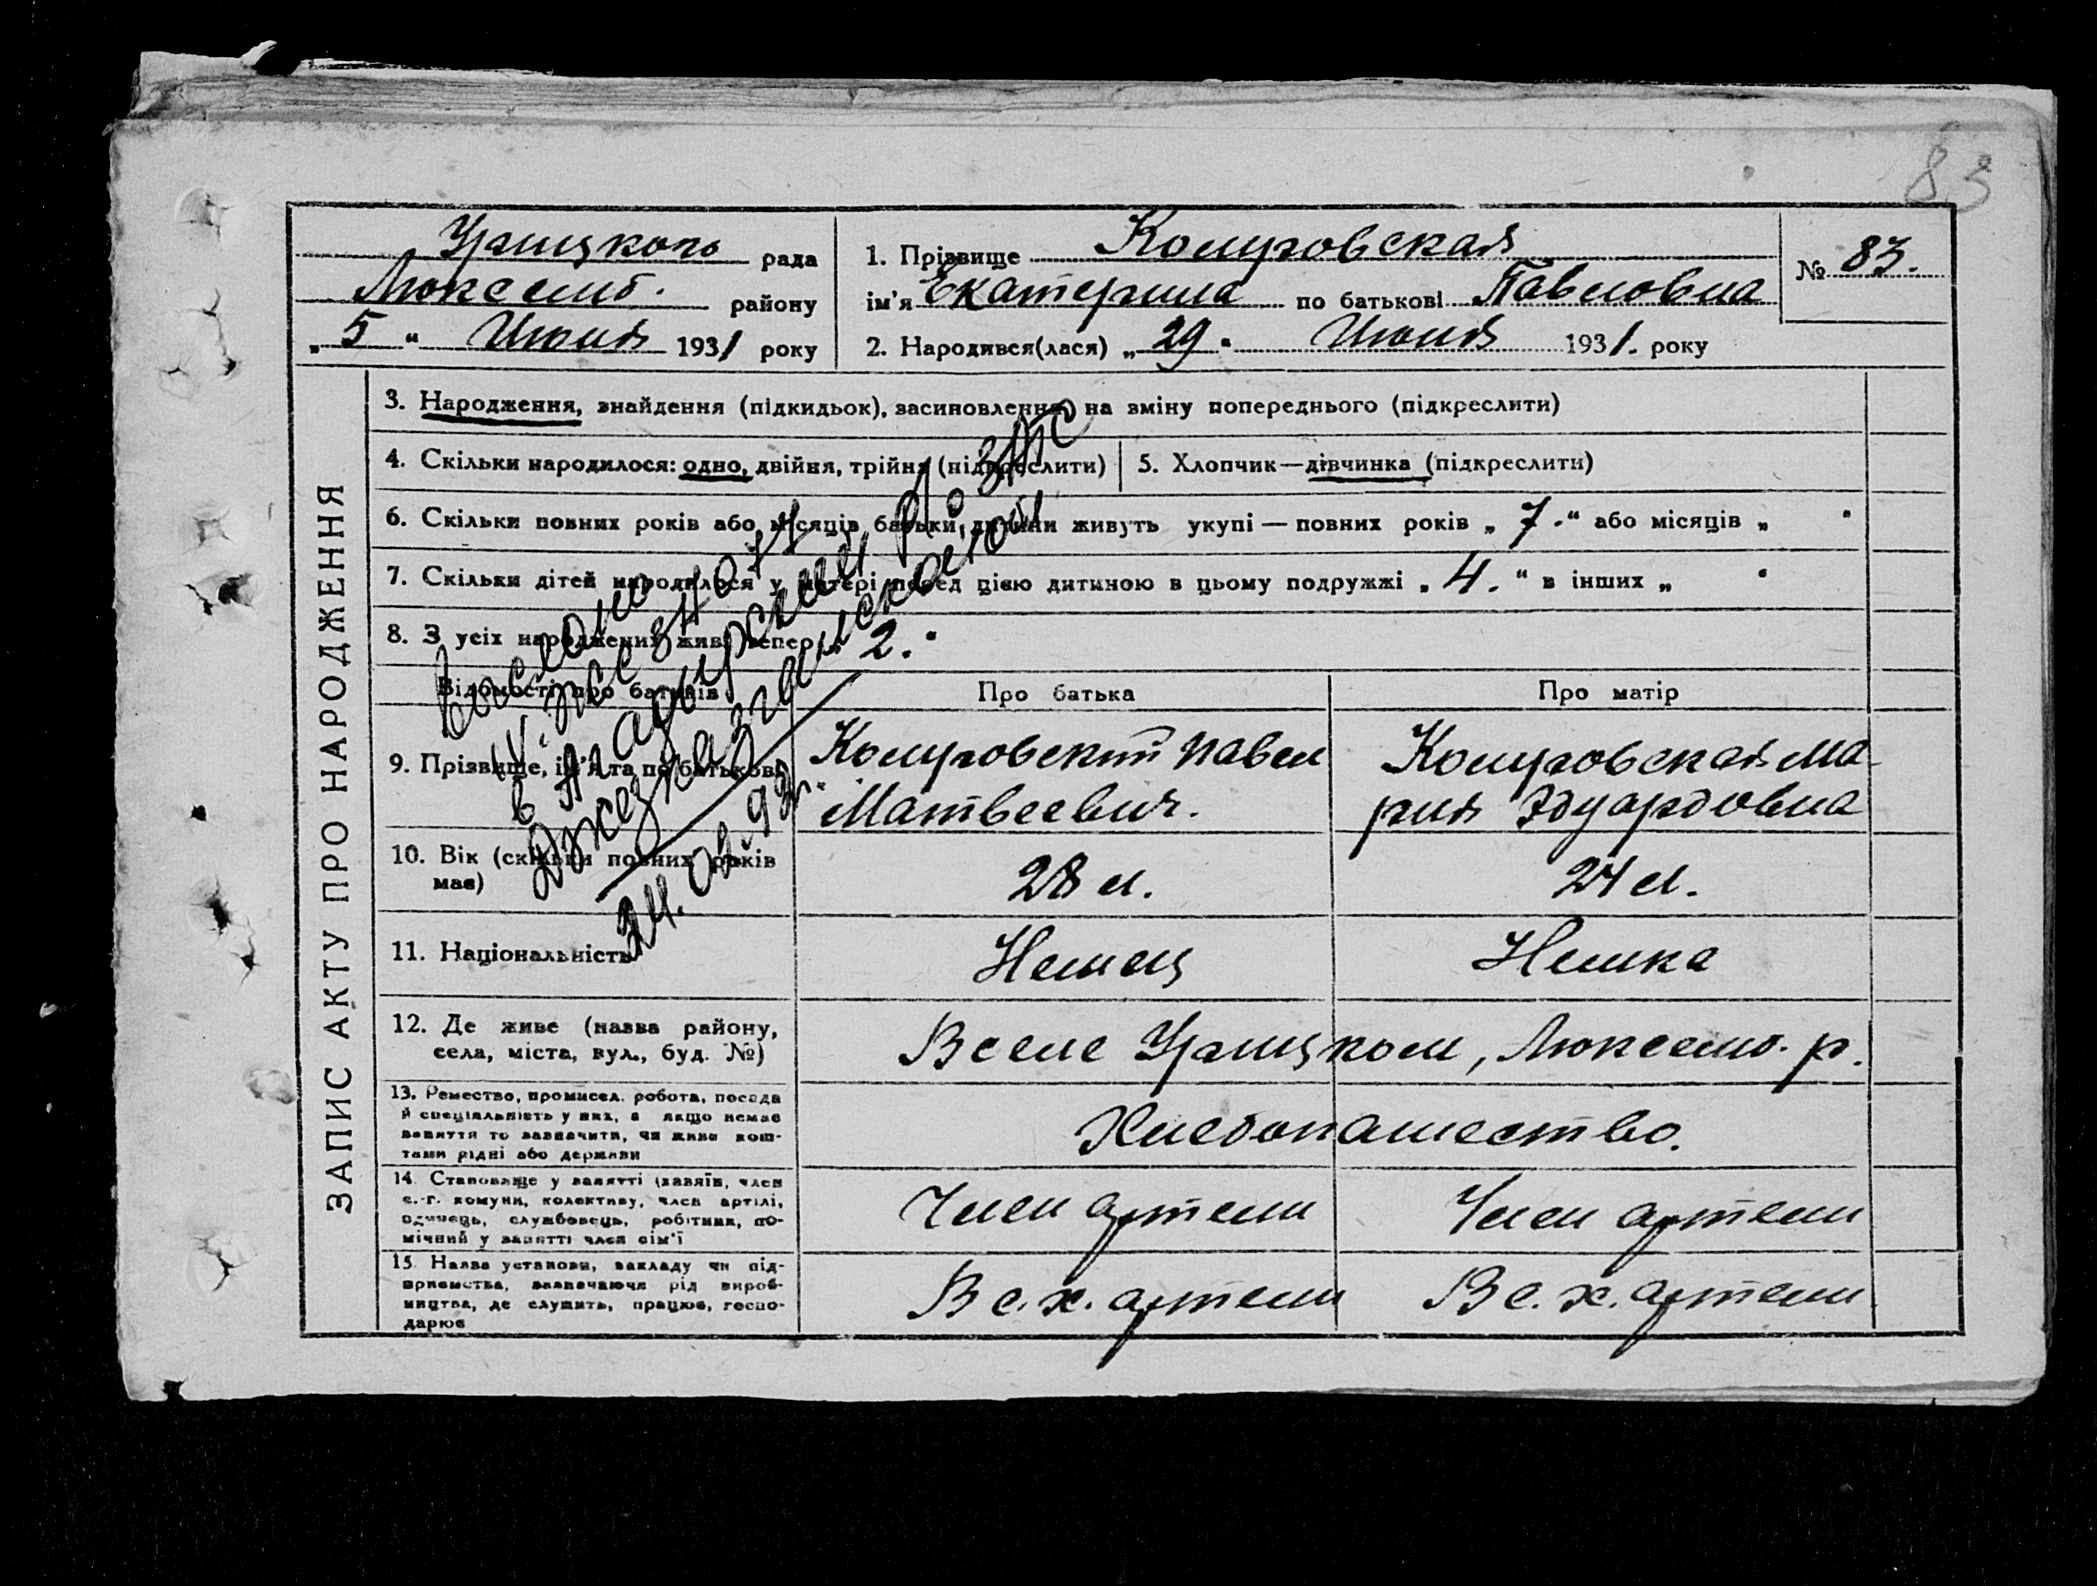 83
Урицкого рада
Люксемб. району
„5“ Июля 1931 року
1. Прізвище Комуровская
ім'я Екатерина по батькові Павловна
2. Народився(лася) „29“ Июня 1931. року
№ 83.
ЗАПИС АКТУ ПРО НАРОДЖЕННЯ
3. Народження, знайдення (підкидьок), засиновлення, на зміну попереднього (підкреслити)
4. Скільки народилося: одно, двійня, трійня (підкреслити)
5. Хлопчик—дівчинка (підкреслити)
6. Скільки повних років або місяців батьки дитини живуть укупі — повних років „7.“ або місяців „
7. Скільки дітей народилося у матері перед цією дитиною в цьому подружжі „4.“ в інших „
8. З усіх народжених живі тепер 2.
Відомості про батьків
Про батька
Про матір
9. Прізвище, ім'я та по батькові
Комуровский Павел
Матвеевич.
Комуровская Ма-
рия Эдуардовна
10. Вік (скільки повних років
має)
28 л.
24 л.
11. Національність
Немец
Немка
12. Де живе (назва району,
села, міста, вул., буд. №)
В селе Урицком, Люксемб. р.
13. Ремество, промисел, робота, посада
й спеціяльність у них, а якщо немає
заняття то зазначити, чи живе кош-
тами рідні або держави
Хлебопашество.
14. Становище у занятті (хазяїн, член
с.-г. комуни, колективу, член артілі,
одинець, службовець, робітник, по-
мічний у занятті член сім'ї
Член артели
Член артели
15. Назва установи, закладу чи під-
приємства, зазначаючи рід вироб-
ництва, де служить, працює, госпо-
дарює
В с. х. артели
В с. х. артели
Выслано
в Агадырский р/о ЗАГС
Джезказганской